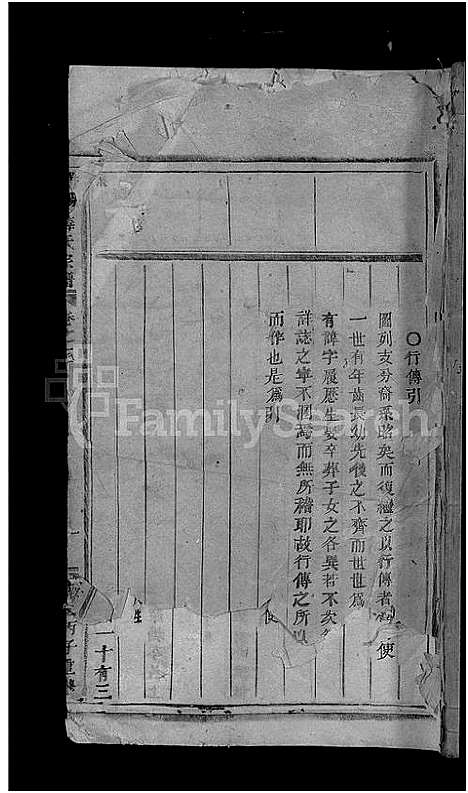 〇行傳引
圖列支分裔系昭矣而復繼之以行傳者 便
一世有年齒長幼先後之不齊而世世為
有諱字履歷生娶卒葬子女之各異若不
詳誌之寧不凋焉而無所稽耶故行傳之所
而作也是為引
便
氏宗譜
一十有三
FamilySearch